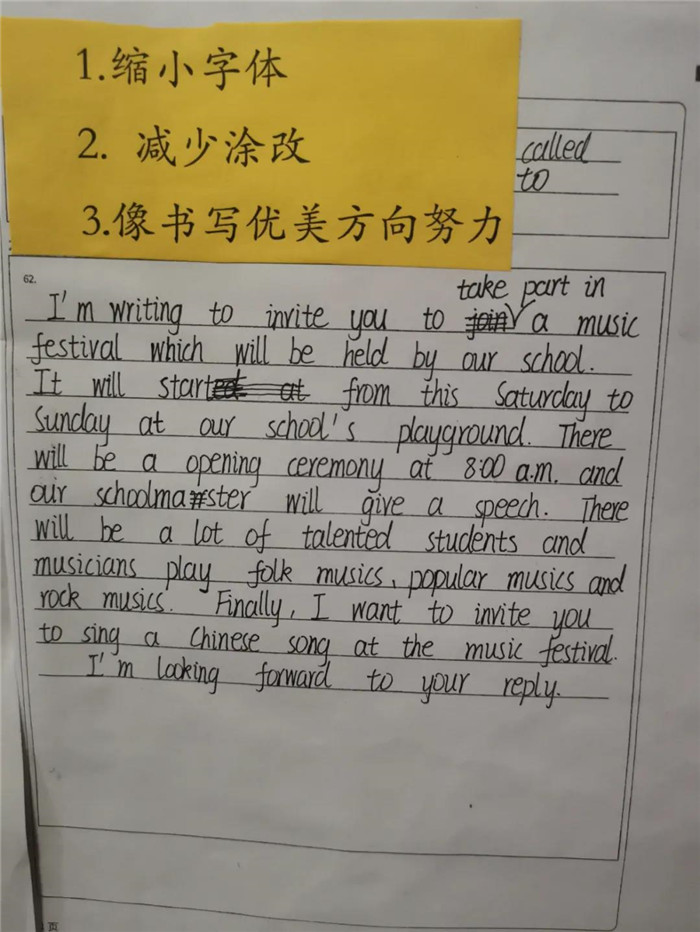 1.缩小字体
2. 减少涂改
3.像书写优美方向努力
called
to
62.
take part in
I'm writing to invite you to join a music
festival which will be held by our school.
It will started at from this Saturday to
Sunday at our school's playground. There
will be a opening ceremony at 8:00 a.m. and
our schoolmaster will give a speech. There
will be a lot of talented students and
musicians play folk musics, popular musics and
rock musics. Finally, I want to invite you
to sing a Chinese song at the music festival.
I'm looking forward to your reply.
页